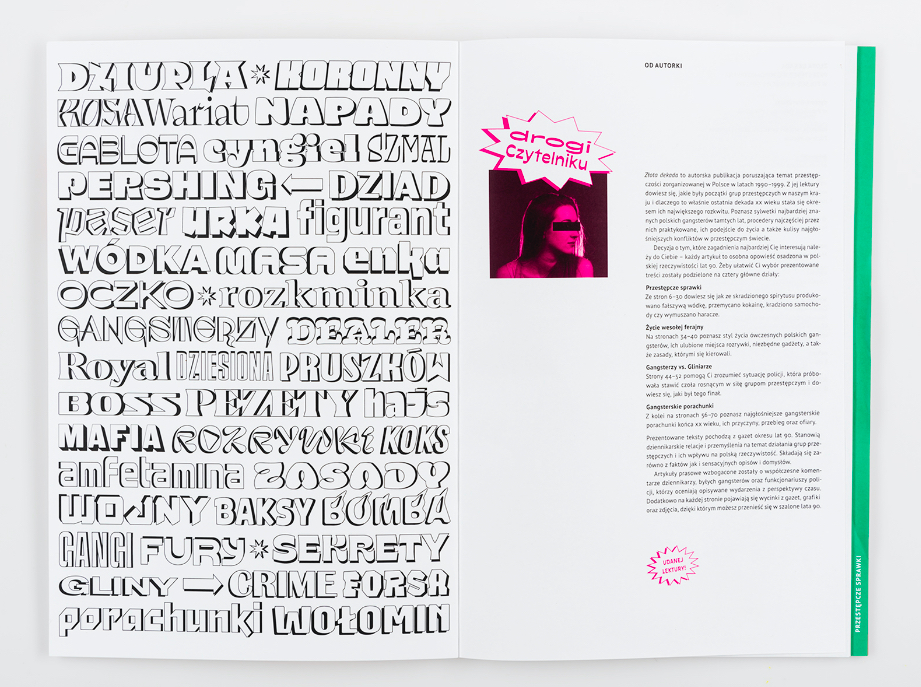 DZIUPLA KORONNY
KOSA Wariat NAPADY
GABLOTA cyngiel SZMAL
PERSHING ← DZIAD
paser URKA figurant
WÓDKA MASA enka
OCZKO rozkminka
GANGSTERZY DEALER
Royal DZIESIONA PRUSZKÓW
BOSS PEZETY hajs
MAFIA ROZRYWKI KOKS
amfetamina ZASADY
WOJNY BAKSY BOMBA
GANGI FURY SEKRETY
GLINY → CRIME FORSA
porachunki WOŁOMIN
OD AUTORKI
drogi
Czytelniku
Złota dekada to autorska publikacja poruszająca temat przestęp-
czości zorganizowanej w Polsce w latach 1990–1999. Z jej lektury
dowiesz się, jakie były początki grup przestępczych w naszym kra-
ju i dlaczego to właśnie ostatnia dekada XX wieku stała się okre-
sem ich największego rozkwitu. Poznasz sylwetki najbardziej zna-
nych polskich gangsterów tamtych lat, procedery najczęściej przez
nich praktykowane, ich podejście do życia a także kulisy najgło-
śniejszych konfliktów w przestępczym świecie.
Decyzja o tym, które zagadnienia najbardziej Cię interesują nale-
ży do Ciebie – każdy artykuł to osobna opowieść osadzona w pol-
skiej rzeczywistości lat 90. Żeby ułatwić Ci wybór prezentowane
treści zostały podzielone na cztery główne działy:
Przestępcze sprawki
Ze stron 6–30 dowiesz się jak ze skradzionego spirytusu produko-
wano fałszywą wódkę, przemycano kokainę, kradziono samocho-
dy czy wymuszano haracze.
Życie wesołej ferajny
Na stronach 34–40 poznasz styl życia ówczesnych polskich gan-
gsterów, ich ulubione miejsca rozrywki, niezbędne gadżety, a tak-
że zasady, którymi się kierowali.
Gangsterzy vs. Gliniarze
Strony 44–52 pomogą Ci zrozumieć sytuację policji, która próbo-
wała stawić czoła rosnącym w siłę grupom przestępczym i do-
wiesz się, jaki był tego finał.
Gangsterskie porachunki
Z kolei na stronach 56–70 poznasz najgłośniejsze gangsterskie
porachunki końca XX wieku, ich przyczyny, przebieg oraz ofiary.
Prezentowane teksty pochodzą z gazet okresu lat 90. Stanowią
dziennikarskie relacje i przemyślenia na temat działania grup prze-
stępczych i ich wpływu na polską rzeczywistość. Składają się za-
równo z faktów jak i sensacyjnych opisów i domysłów.
Artykuły prasowe wzbogacone zostały o współczesne komen-
tarze dziennikarzy, byłych gangsterów oraz funkcjonariuszy poli-
cji, którzy oceniają opisywane wydarzenia z perspektywy czasu.
Dodatkowo na każdej stronie pojawiają się wycinki z gazet, grafiki
oraz zdjęcia, dzięki którym możesz przenieść się w szalone lata 90.
UDANEJ
LEKTURY!
PRZESTĘPCZE SPRAWKI